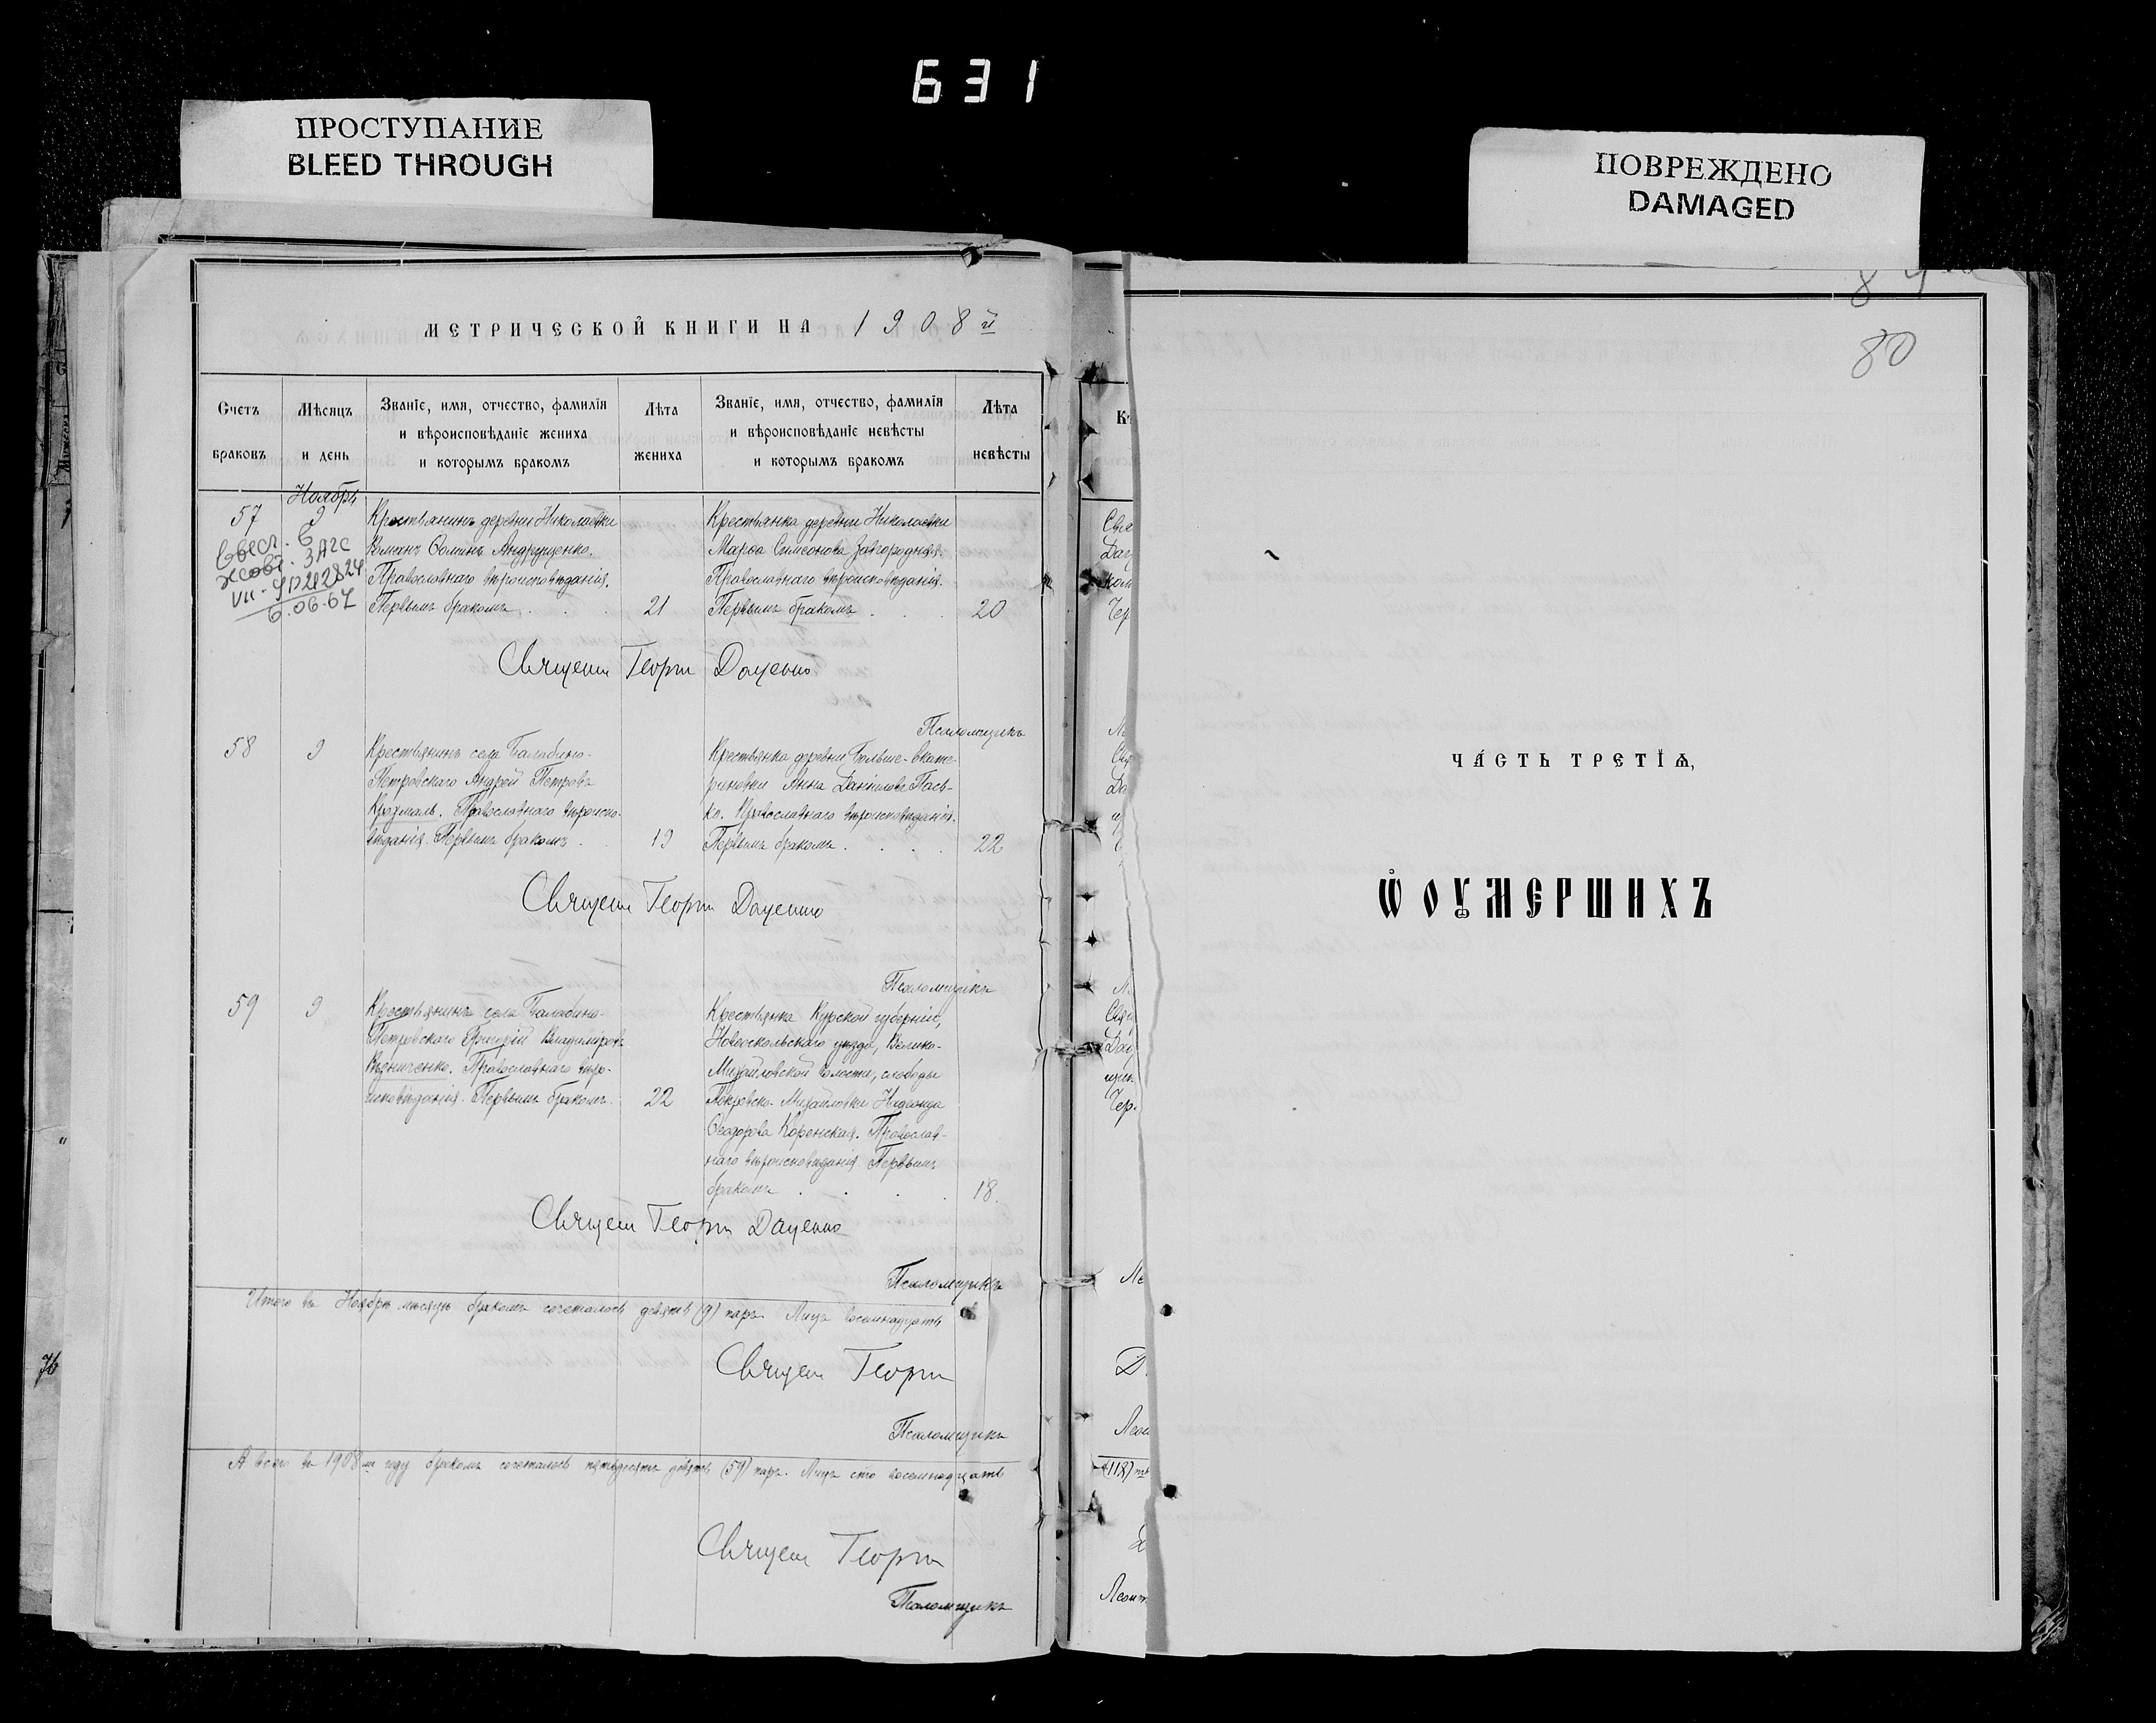 631
ПРОСТУПАНИЕ
BLEED THROUGH
ПОВРЕЖДЕНО
DAMAGED
МЕТРИЧЕСКОЙ КНИГИ НА 1908й
Счетъ браковъ
Мѣсяцъ и день
Званіе, имя, отчество, фамилія и вѣроисповѣданіе жениха и которымъ бракомъ
Лѣта жениха
Званіе, имя, отчество, фамилія и вѣроисповѣданіе невѣсты и которымъ бракомъ
Лѣта невѣсты
Ноябрь
57
9
Крестьянинъ деревни Николаевки
Романъ Ѳоминъ Андрущенко.
Православнаго вѣроисповѣданія.
Первымъ бракомъ
21
Крестьянка деревни Николаевки
Марѳа Симеонова Завгородняя.
Православнаго вѣроисповѣданія.
Первымъ бракомъ
20
ЗАГС
6.06.67
Священ Георги Даценко
Псаломщикъ
58
9
Крестьянинъ села Балабино-
Петровскаго Андрей Петровъ
Крохмаль. Православнаго вѣроиспо-
вѣданія. Первымъ бракомъ
19
Крестьянка деревни Больше-Екате-
риновки Анна Даніилова Пась-
ко. Православнаго вѣроисповѣданія.
Первымъ бракомъ
22
Священ Георги Даценко
Псаломщикъ
59
9
Крестьянинъ села Балабино-
Петровскаго Григорій Владиміровъ
Вѣдниченко. Православнаго вѣро-
исповѣданія. Первымъ бракомъ.
22
Крестьянка Курской губерніи,
Новооскольскаго уѣзда, Велико-
Михайловской волости, слободы
Покровско-Михайловки
Ѳеодорова Коренская. Православ-
наго вѣроисповѣданія. Первымъ
бракомъ
18.
Священ Георги Даценко
Псаломщикъ
Итого въ Ноябрѣ мѣсяцѣ бракомъ сочеталось девять (9) паръ. Лицъ восемнадцать
Священ Георги
Псаломщикъ
А всего въ 1908мъ году бракомъ сочеталось пятьдесятъ девять (59) паръ. Лицъ сто восемнадцать
(118)
Священ Георги
Псаломщикъ
80
ЧА́СТЬ ТРЕТІѦ,
Ѡ ОУМЕРШИХЪ